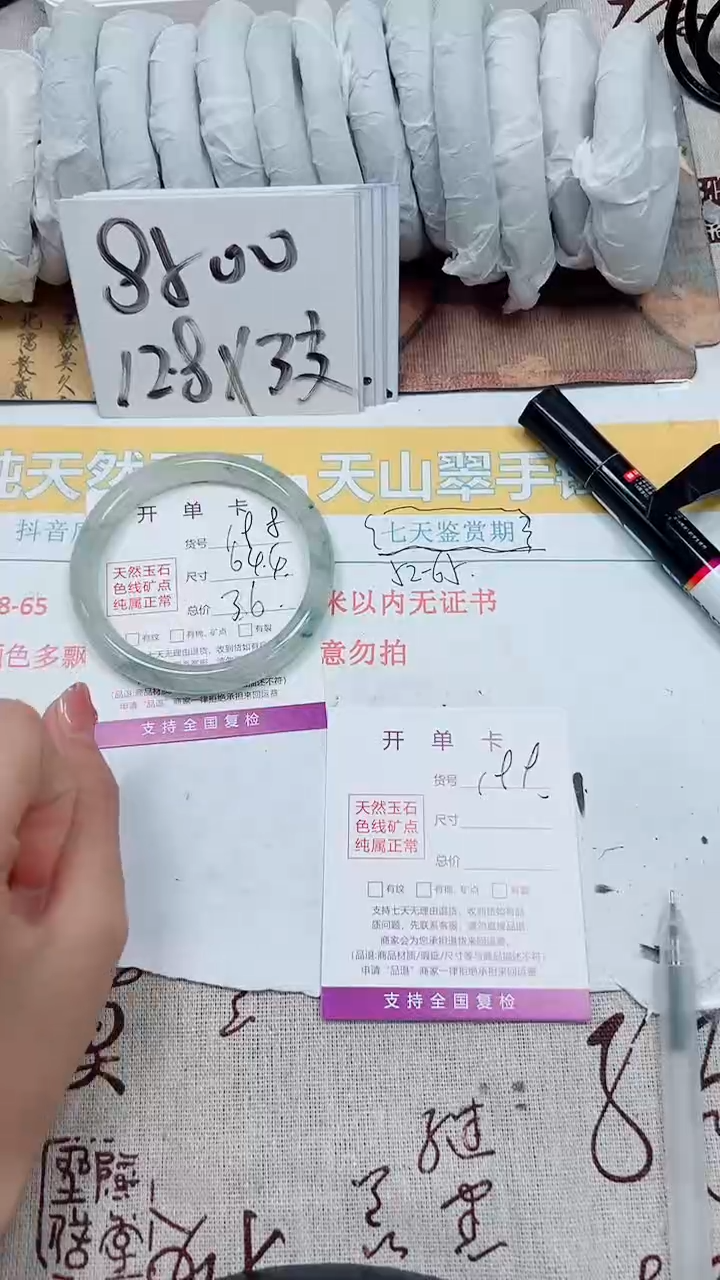 8800
12.8×3支
天山翠手
抖音
七天鉴赏期
52-65.
8-65
米以内无证书
意勿拍
开单卡
货号 198
天然玉石
色线矿点
纯属正常
尺寸 64.4.
总价 36.
有纹 有棉、矿点 有裂
申请“品退”商家一律拒绝承担来回运费
支持全国复检
开单卡
货号 199.
天然玉石
色线矿点
纯属正常
尺寸
总价
有纹 有棉、矿点 有裂
支持七天无理由退货，收到货如有品
质问题，先联系客服，请勿直接品退，
商家会为您承担退货来回运费。
(品退:商品材质/瑕疵/尺寸等与商品描述不符)
申请“品退”商家一律拒绝承担来回运费
支持全国复检